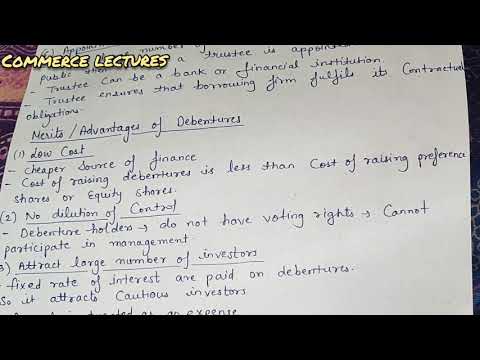 COMMERCE LECTURES
(5) Appoint
number
public then a trustee is appointe
- Trustee can be a bank or financial institution.
- Trustee ensures that borrowing firm fulfils its Contractual
obligations.
Merits/Advantages of Debentures
(1) Low Cost
- cheaper source of finance
- Cost of raising debentures is less than Cost of raising preference
shares or Equity shares.
(2) No dilution of Control
- Debenture holders → do not have voting rights → Cannot
participate in management
3) Attract large number of investors
fixed rate of interest are paid on debentures.
So it attracts Cautious investors
as an expense